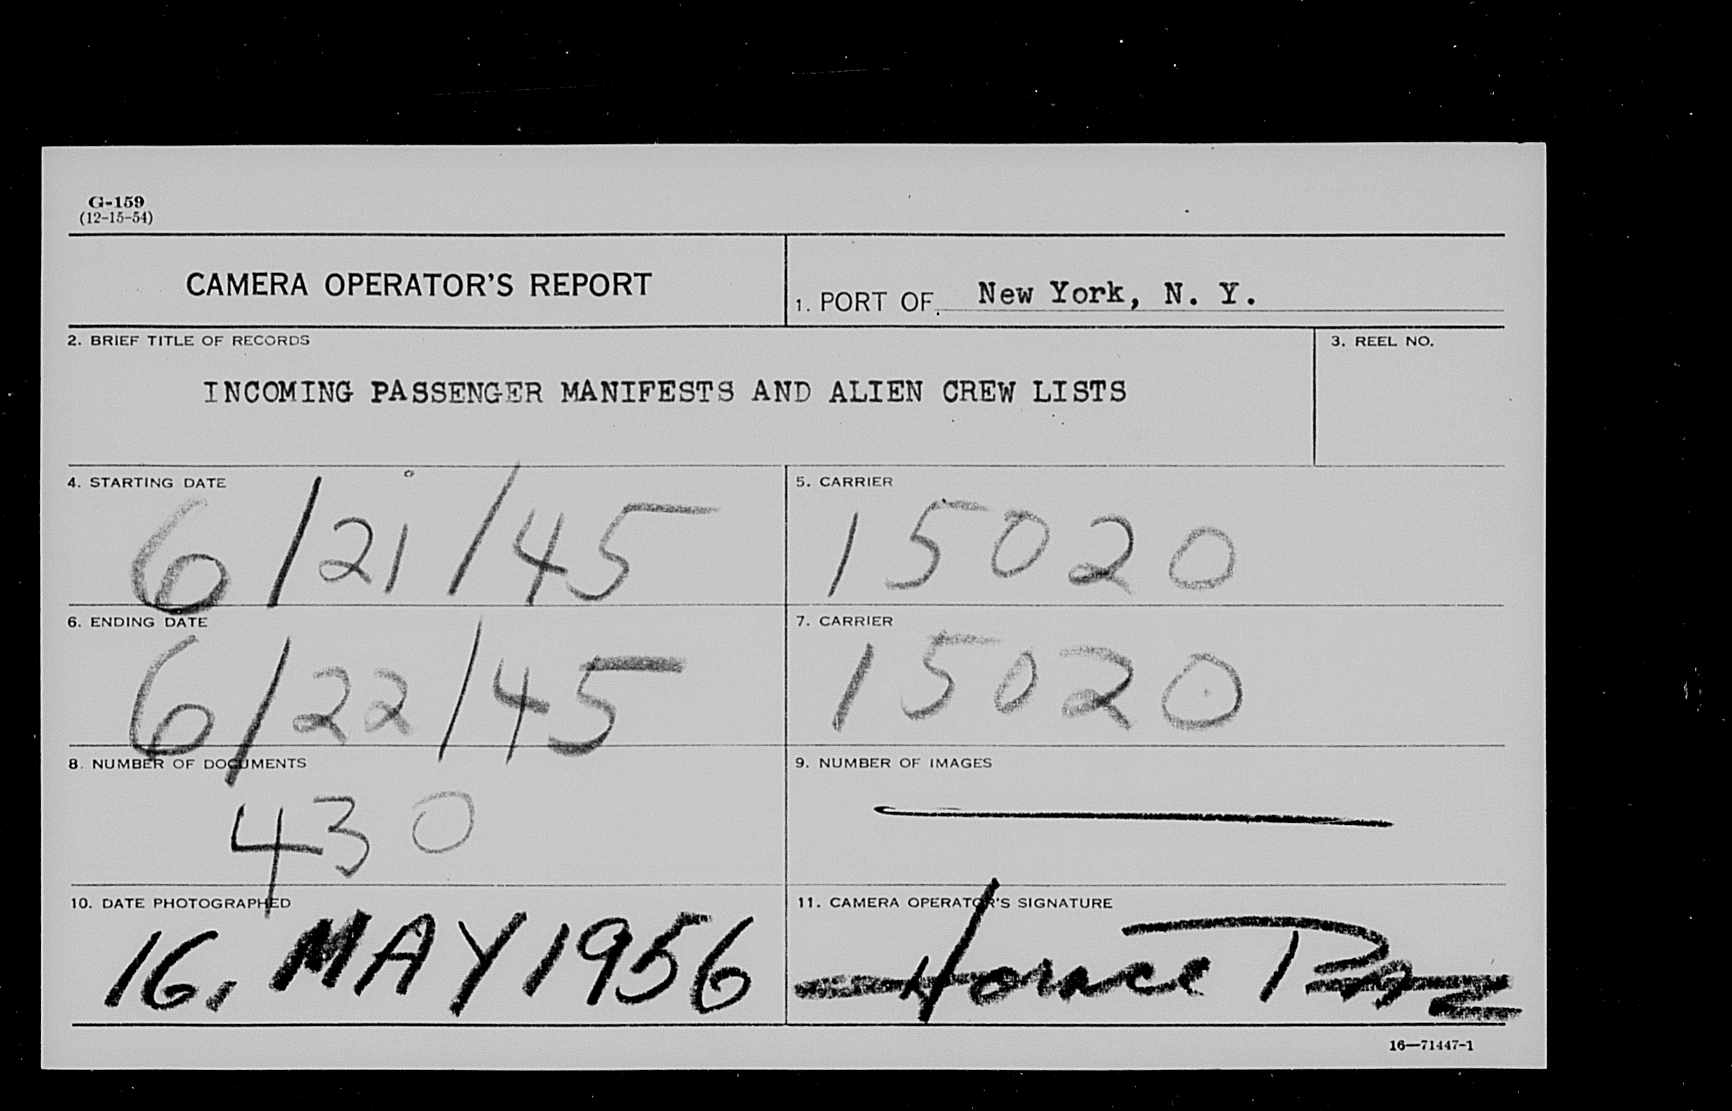 G-159
(12-15-54)
CAMERA OPERATOR'S REPORT
1. PORT OF New York, N. Y.
2. BRIEF TITLE OF RECORDS
INCOMING PASSENGER MANIFESTS AND ALIEN CREW LISTS
3. REEL NO.
4. STARTING DATE
6/21/45
5. CARRIER
15020
6. ENDING DATE
6/22/45
7. CARRIER
15020
8. NUMBER OF DOCUMENTS
430
9. NUMBER OF IMAGES
10. DATE PHOTOGRAPHED
16, MAY 1956
11. CAMERA OPERATOR'S SIGNATURE
Horace
16—71447-1